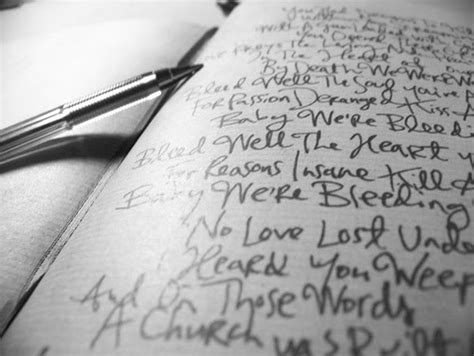 You Had
You Opened
The Heart of
By Death We Were
Bleed Well The Soul you're
For Passion Deranged Kiss
Baby We're Bleed
Bleed Well The Heart y
For Reasons Insane Kill A
Baby We're Bleeding
No Love Lost Unde
Heard You Weep
And On Those Words
A Church was Built